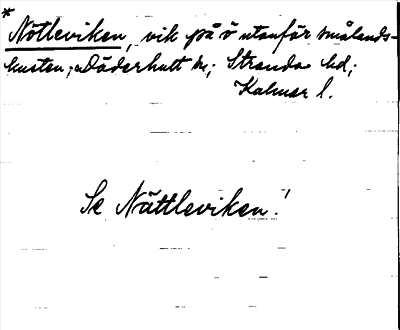 * Nötleviken, vik på ö utanför Smålands-
kusten; Döderhult sn; Stranda hd;
Kalmar l.
Se Nättleviken!